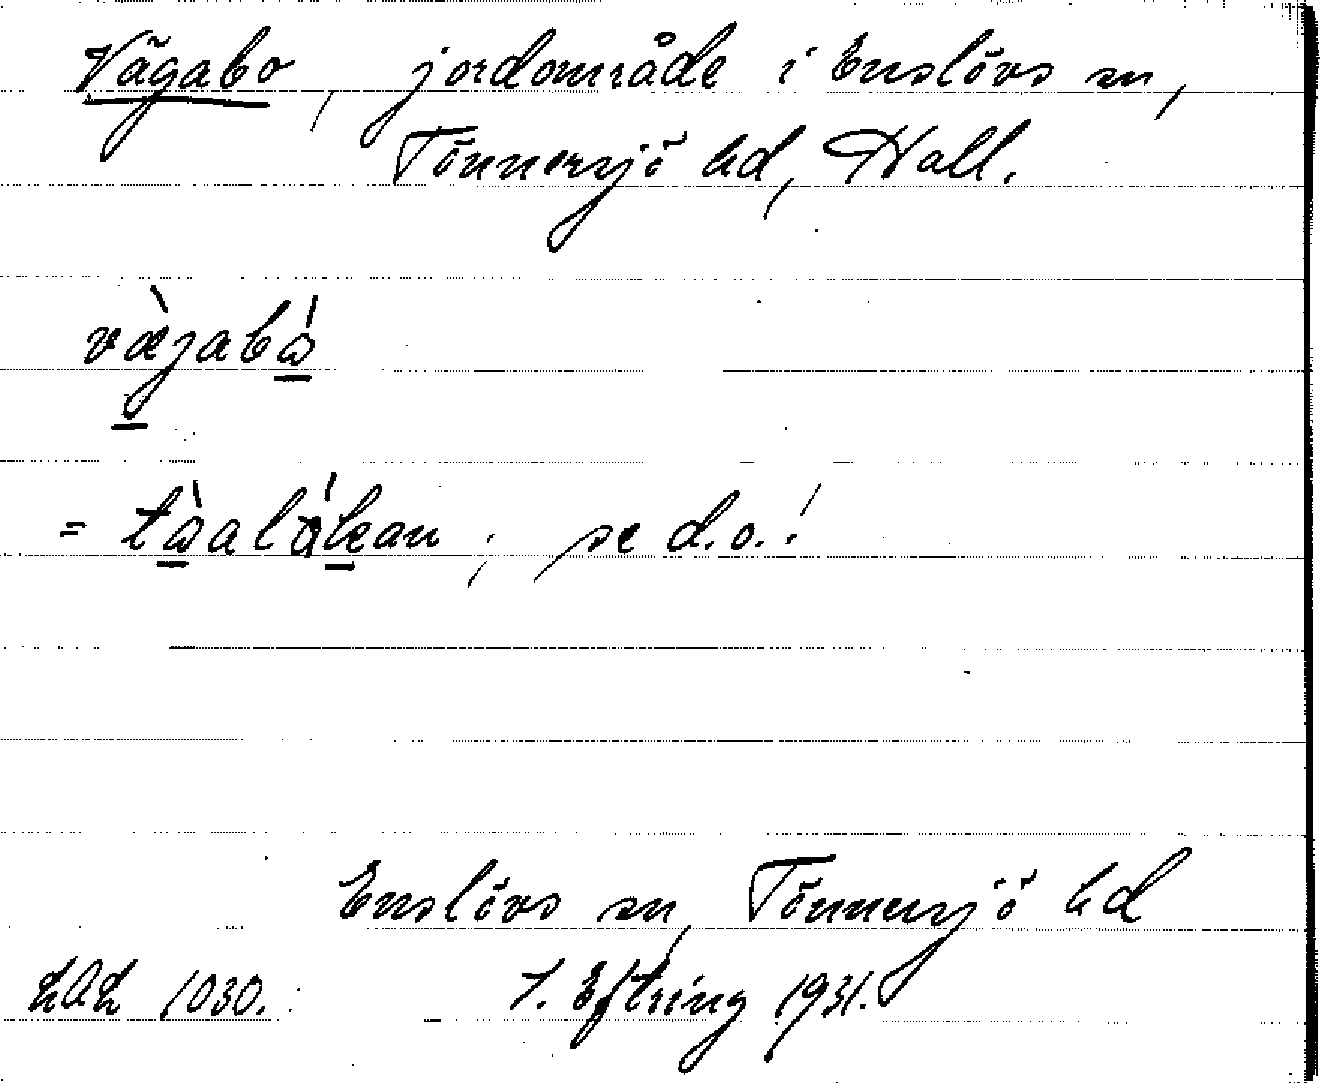 Vägabo, jordområde i Enslövs sn,
Tönnersjö hd, Hall.
se d.o.!
Enslövs sn, Tönnersjö hd
LAL 1030. T. Eftring 1931.